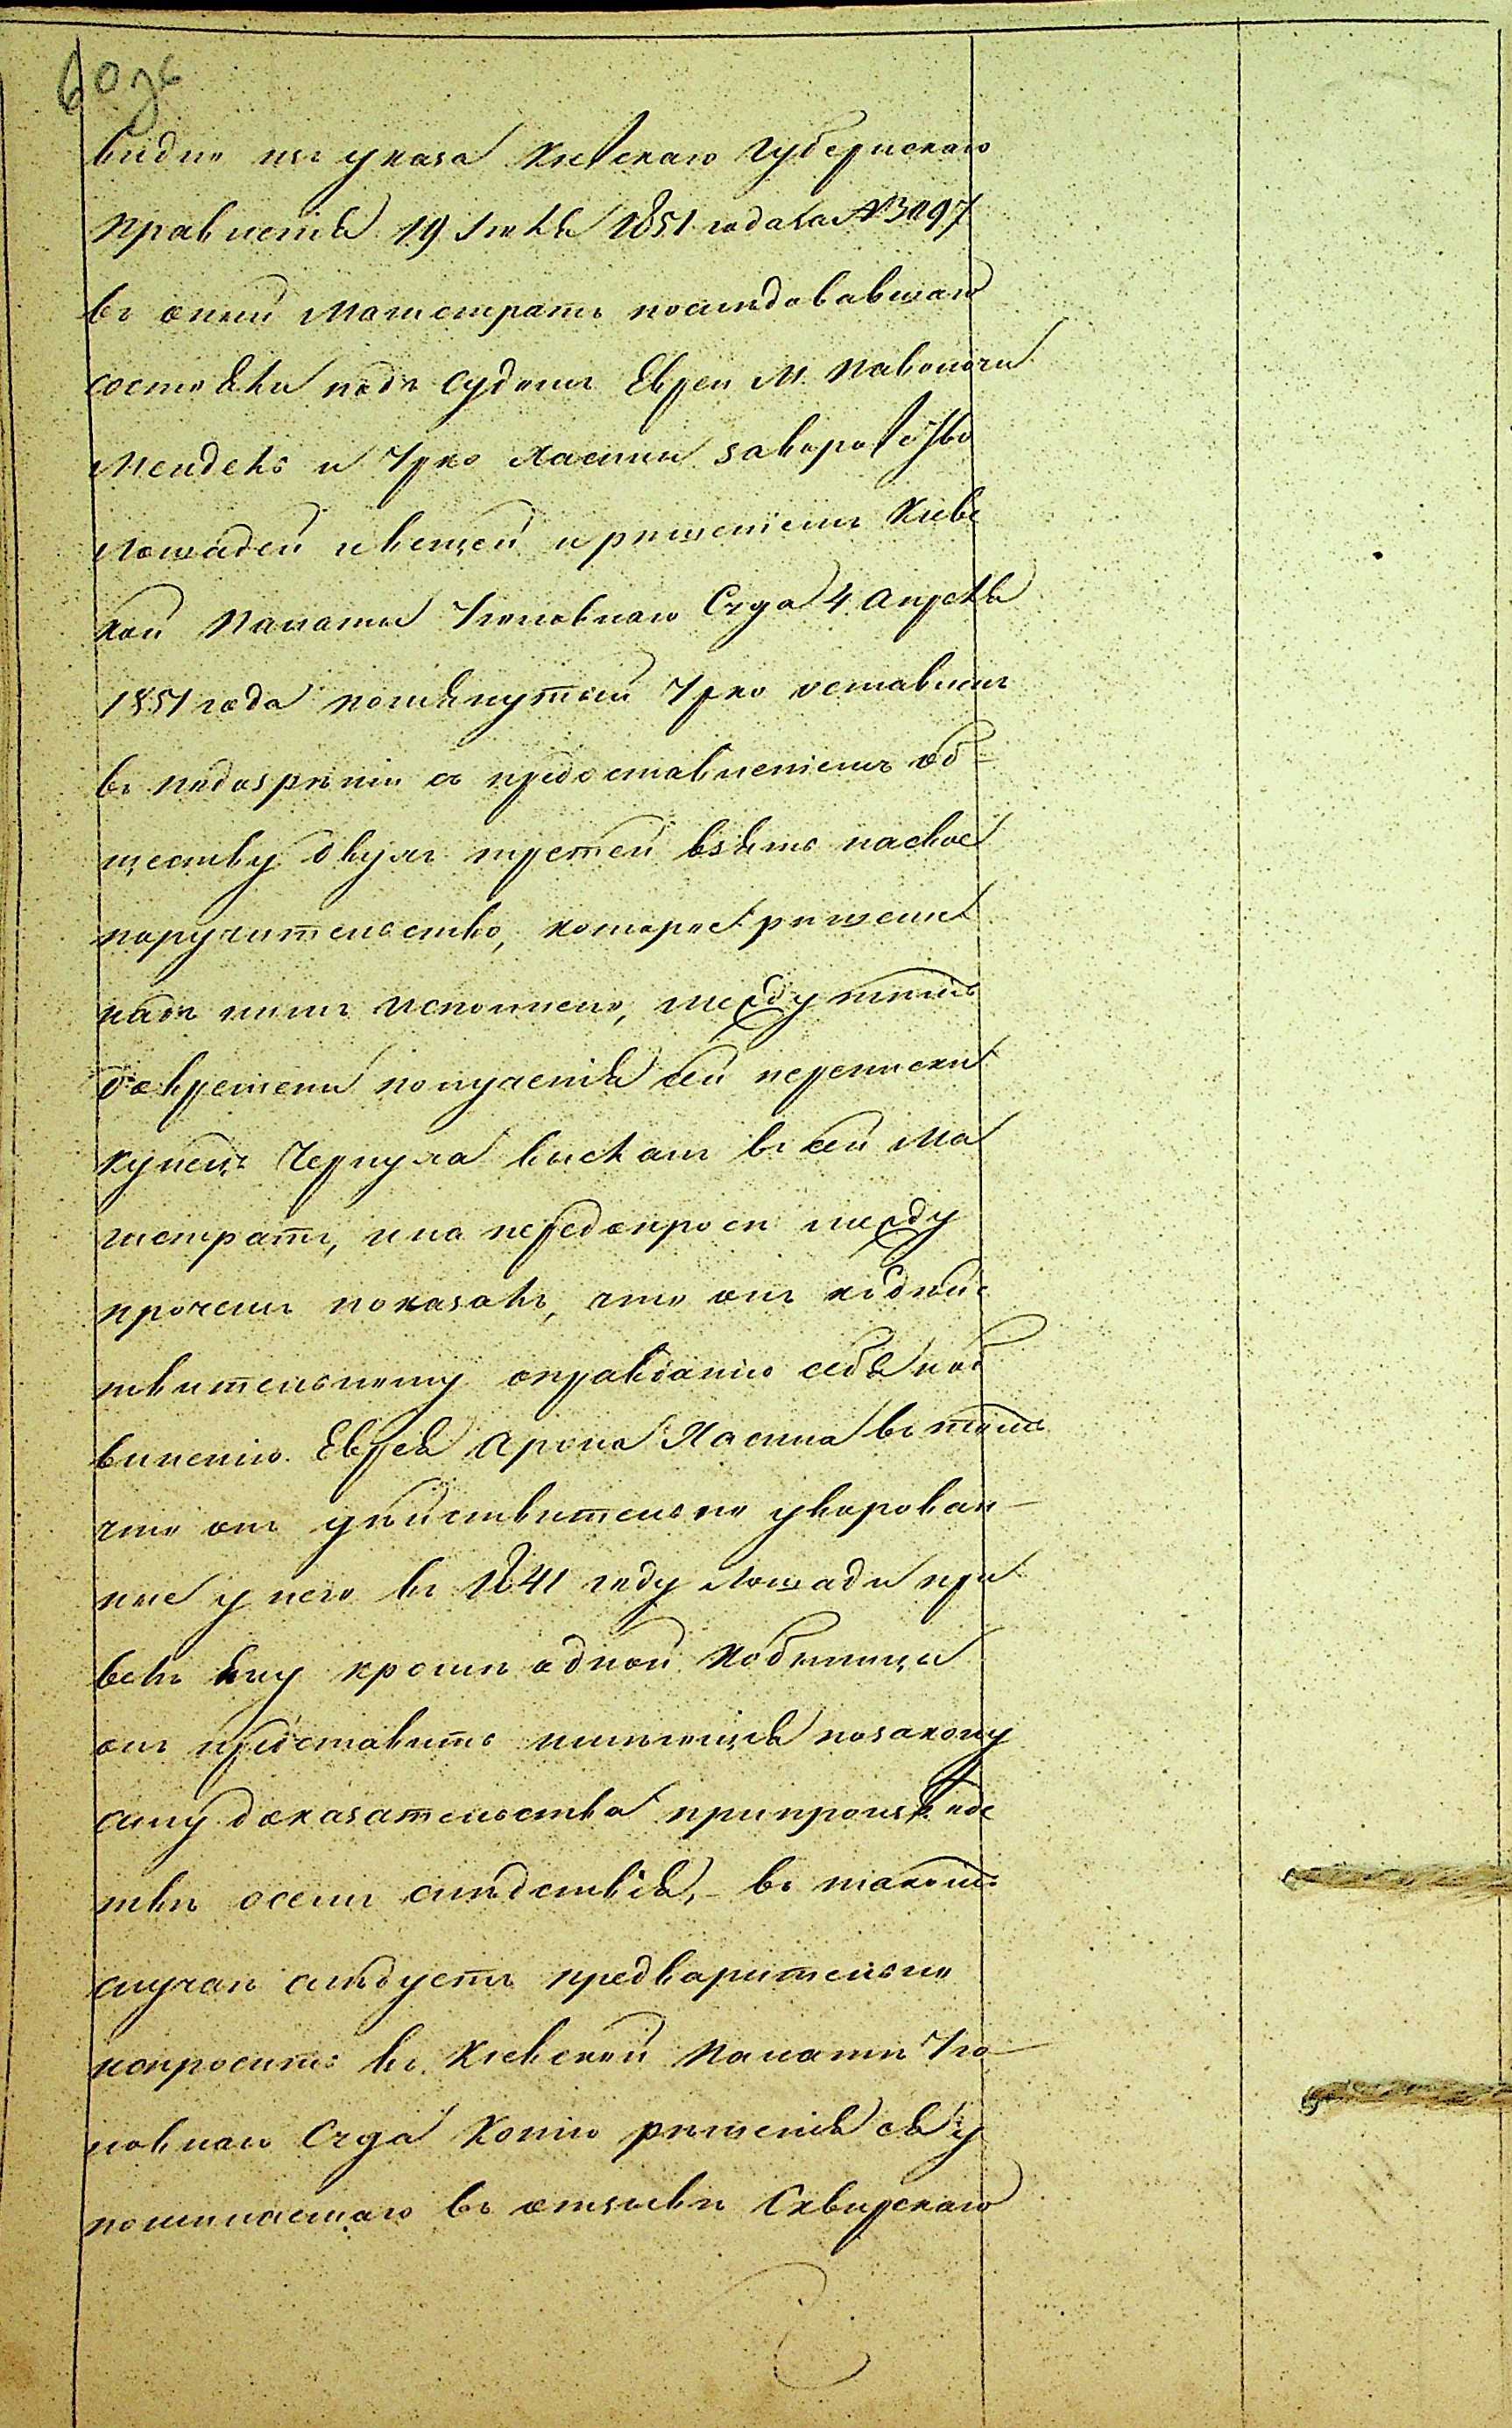 60 зв
видно изъ указа Кіевскаго Губернскаго
Правленія 19 Іюля 1851 года за № 3097
въ оный Магистратъ последовавшаго
состояли подъ судомъ Евреи М. Паволочи
Мендель и Урко Ласины за воровство
лошадей и вещей и решеніемъ Кіевс
кой Палаты Уголовнаго Суда 4 Апреля
1851 года помянутый Урко оставленъ
въ подозреніи съ предоставленіемъ об=
ществу двухъ третей взять на свое
поручительство, которое решеніе
надъ нимъ исполнено, между темъ
до времени полученія сей переписки
купецъ Чернуха высланъ въ сей Ма
гистратъ, и на передопросе между
прочемъ показалъ, что онъ къ дейс
твительному оправданію себя по об
виненію Еврея Арона Ласина въ томъ
что онъ действительно уворован-
ные у него въ 1841 году лошади при
велъ ему кроме одной кобылицы
онъ представитъ имеющія по закону
силу доказательства при производс
тве о семъ следствія, - въ такомъ
случае следуетъ предварительно
испросить въ Кіевской Палате Уго-
ловнаго Суда копію решенія в у
поминаемаго въ отзыве Сквирскаго